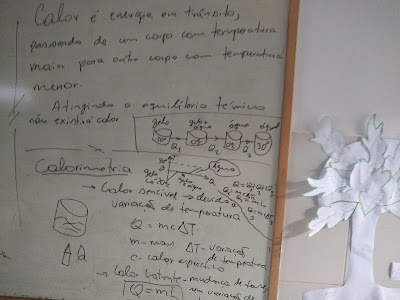 Calor é energia em trânsito,
passando de um corpo com temperatura
maior para outro corpo com temperatura
menor.
Atingindo o equilíbrio térmico
não existirá calor
gelo gelo+água água água
Q1 Q2 Q3
Calorimetria
30°
0°
gelo
água
Q
→ Calor sensível → devido a
variação de temperatura
Q = Q1+Q2+Q3
Q = mcΔT
m = massa ΔT - variação
de temperatura
c - calor específico
→ Calor latente - mudança de fase
sem variação de
Q = mL